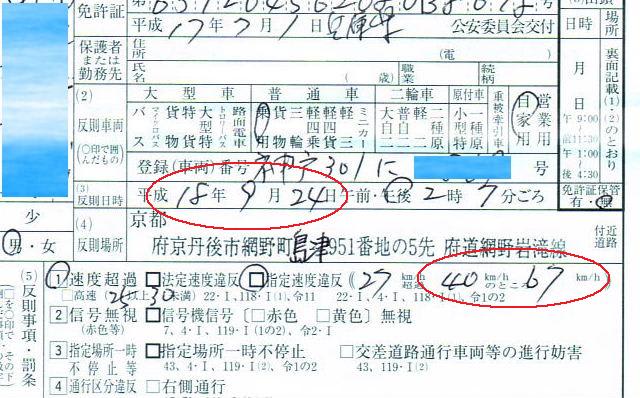 免許証
平成 17年 7月 1日 兵庫県 公安委員会交付
日時 場所
保護者または勤務先
住所
(電 )
氏名
職業
続柄
月
日
裏面記載(1)(2)のとおり
(2)
反則車両
(○印で囲んだもの)
大型車 普通車 二輪車 原付車 重被牽引車
バス マイクロバス 貨物 特大 大型特 トロリーバス 路面電車
乗用 貨物 三輪 軽四乗 軽四貨 軽三 ミニカー
大自二 普自二 小型特 二種原 一種原
自家用 営業用
午 9:00~
午 1:00~
後 4:30
登録(車両)番号 301 号
(3)
反則日時
平成 18年 9月 24日 午前・午後 2時 7分ごろ
免許証保管
有・無
少
男・女
(4)
反則場所
京都
府京丹後市網野町島津3951番地の5先 府道網野岩滝線
付近
道路
(5)
反則事項・罰条
1 速度超過 □法定速度違反 □指定速度違反 (27 km/h超過 40 km/hのところ 67 km/h)
□高速 (25以上30未満) 22・I、118・I(1)、令11 22・I、4・I、118・I(1)、令1の2
2 信号無視 □信号機信号 〔□赤色 □黄色〕無視
(赤色等) 7、4・I、119・I(1の2)、令2・I
3 指定場所一時不停止等 □指定場所一時不停止 □交差道路通行車両等の進行妨害
43、4・I、119・I(2)、令1の2 43、119・I(2)
4 通行区分違反 □右側通行